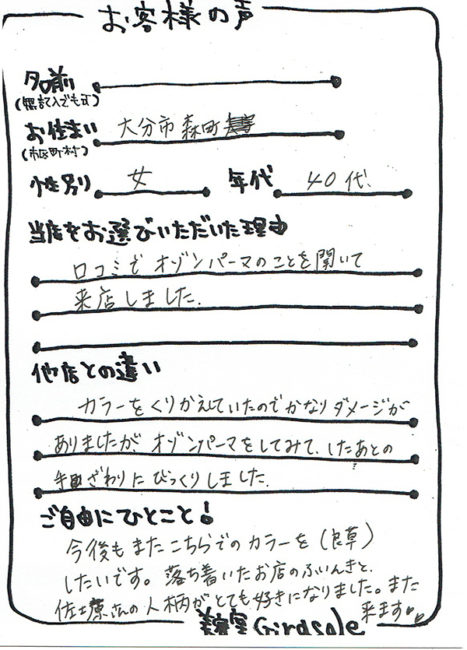 お客様の声
名前
(無記入でも可)
お住まい 大分市 森町
(市区町村)
性別 女 年代 40代
当店をお選びいただいた理由
口コミで オゾンパーマのことを聞いて
来店しました.
他店との違い
カラーをくりかえしていたのでかなりダメージが
ありましたが オゾンパーマをしてみて、したあとの
手ざわりに びっくりしました.
ご自由にひとこと!
今後も また こちらでの カラーを (良草)
したいです。落ち着いたお店のふいんきと、
さんの人柄がとても好きになりました。また
来ます
美容室 Girasole